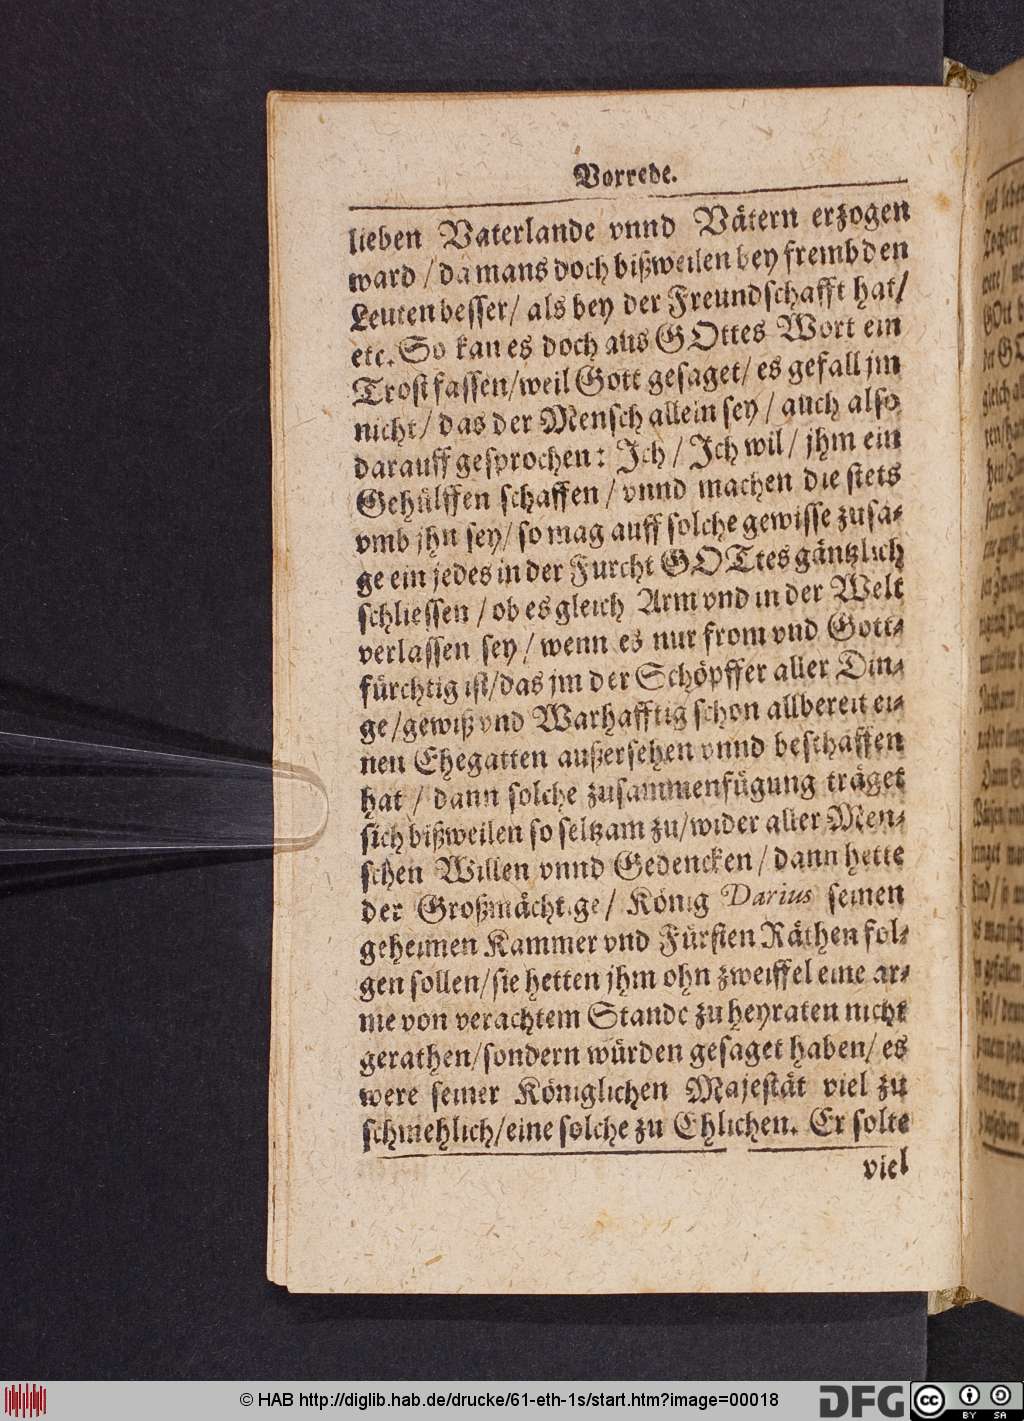 Vorrede.
lieben Vaterlande vnnd Vätern erzogen
ward / da mans doch bißweilen bey frembden
Leuten besser / als bey der Freundschafft hat /
etc. So kan es doch aus GOttes Wort ein
Trost fassen / weil Gott gesaget / es gefall jm
nicht / das der Mensch allein sey / auch also
darauff gesprochen: Ich / Ich wil / jhm ein
Gehülffen schaffen / vnnd machen die stets
vmb jhn sey / so mag auff solche gewisse zusa-
ge ein jedes in der Furcht GOTtes gäntzlich
schliessen / ob es gleich Arm vnd in der Welt
verlassen sey / wenn es nur from vnd Gott-
fürchtig ist / das jm der Schöpffer aller Din-
ge / gewiß vnd Warhafftig schon allbereit ei-
nen Ehegatten außersehen vnnd beschaffen
hat / dann solche zusammenfügung träget
sich bißweilen so seltzam zu / wider aller Men-
schen Willen vnnd Gedencken / dann hette
der Großmächtige / König Darius seinen
geheimen Kammer vnd Fürsten Räthen fol-
gen sollen / sie hetten jhm ohn zweiffel eine ar-
me von verachtem Stande zu heyraten nicht
gerathen / sondern würden gesaget haben / es
were seiner Königlichen Majestät viel zu
schmehlich / eine solche zu Ehlichen. Er solte
viel
© HAB http://diglib.hab.de/drucke/61-eth-1s/start.htm?image=00018
DFG
cc BY SA